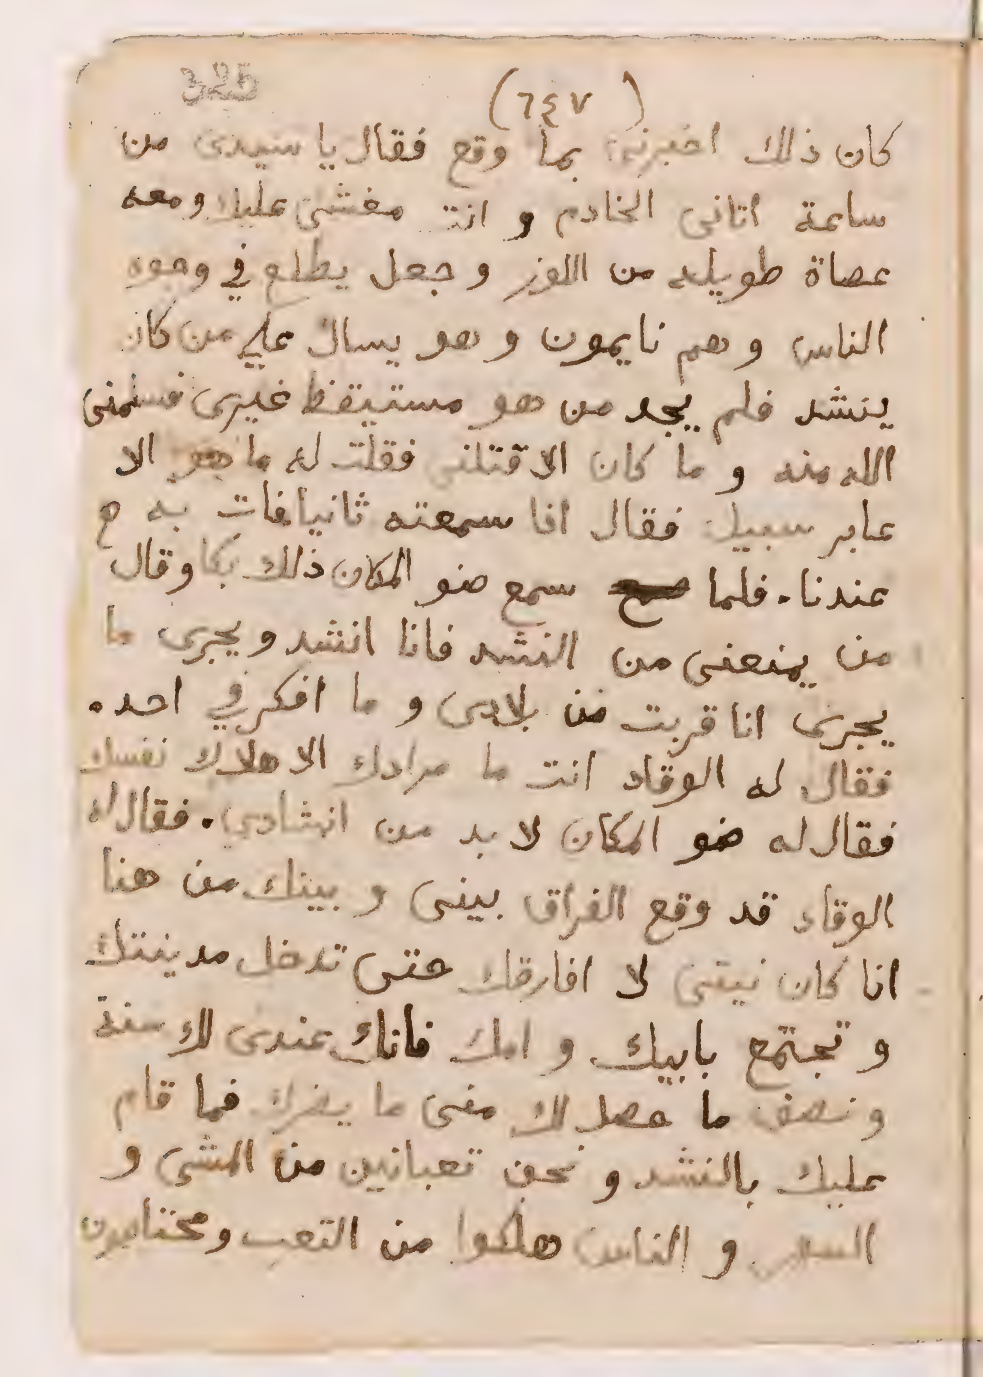 325
(٦٤٧)
كان ذلك اخبرنى بما وقع فقال يا سيدى من
ساعة اتانى الخادم و انت مغشى عليك ومعه
عصاة طويله من اللوز و جعل يطلع في وجوه
الناس و هم نايمون و هو يسال على من كان
ينشد فلم يجد من هو مستيقظ غيرى فسلمنى
الله منه و ما كان الا قتلنى فقلت له ما هو الا
عابر سبيل فقال اذا سمعته ثانيا فات به ح
عندنا. فلما سمع ضو المكان ذلك بكا وقال
من يمنعنى من النشد فانا انشد و يجرى ما
يجرى انا قربت من بلادى و ما افكر في احد.
فقال له الوقاد انت ما مرادك الا هلاك نفسك
فقال له ضو المكان لا بد من انشادي. فقال له
الوقاد قد وقع الفراق بينى و بينك من هنا
انا كان نيتى لا افارقك حتى تدخل مدينتك
و تجتمع بابيك و امك فانك عندى لك سنة
و نصف ما حصل لك منى ما يضرك فما قام
عليك بالنشد و نحن تعبانين من المشى و
السهر و الناس هلكوا من التعب و محتاجون